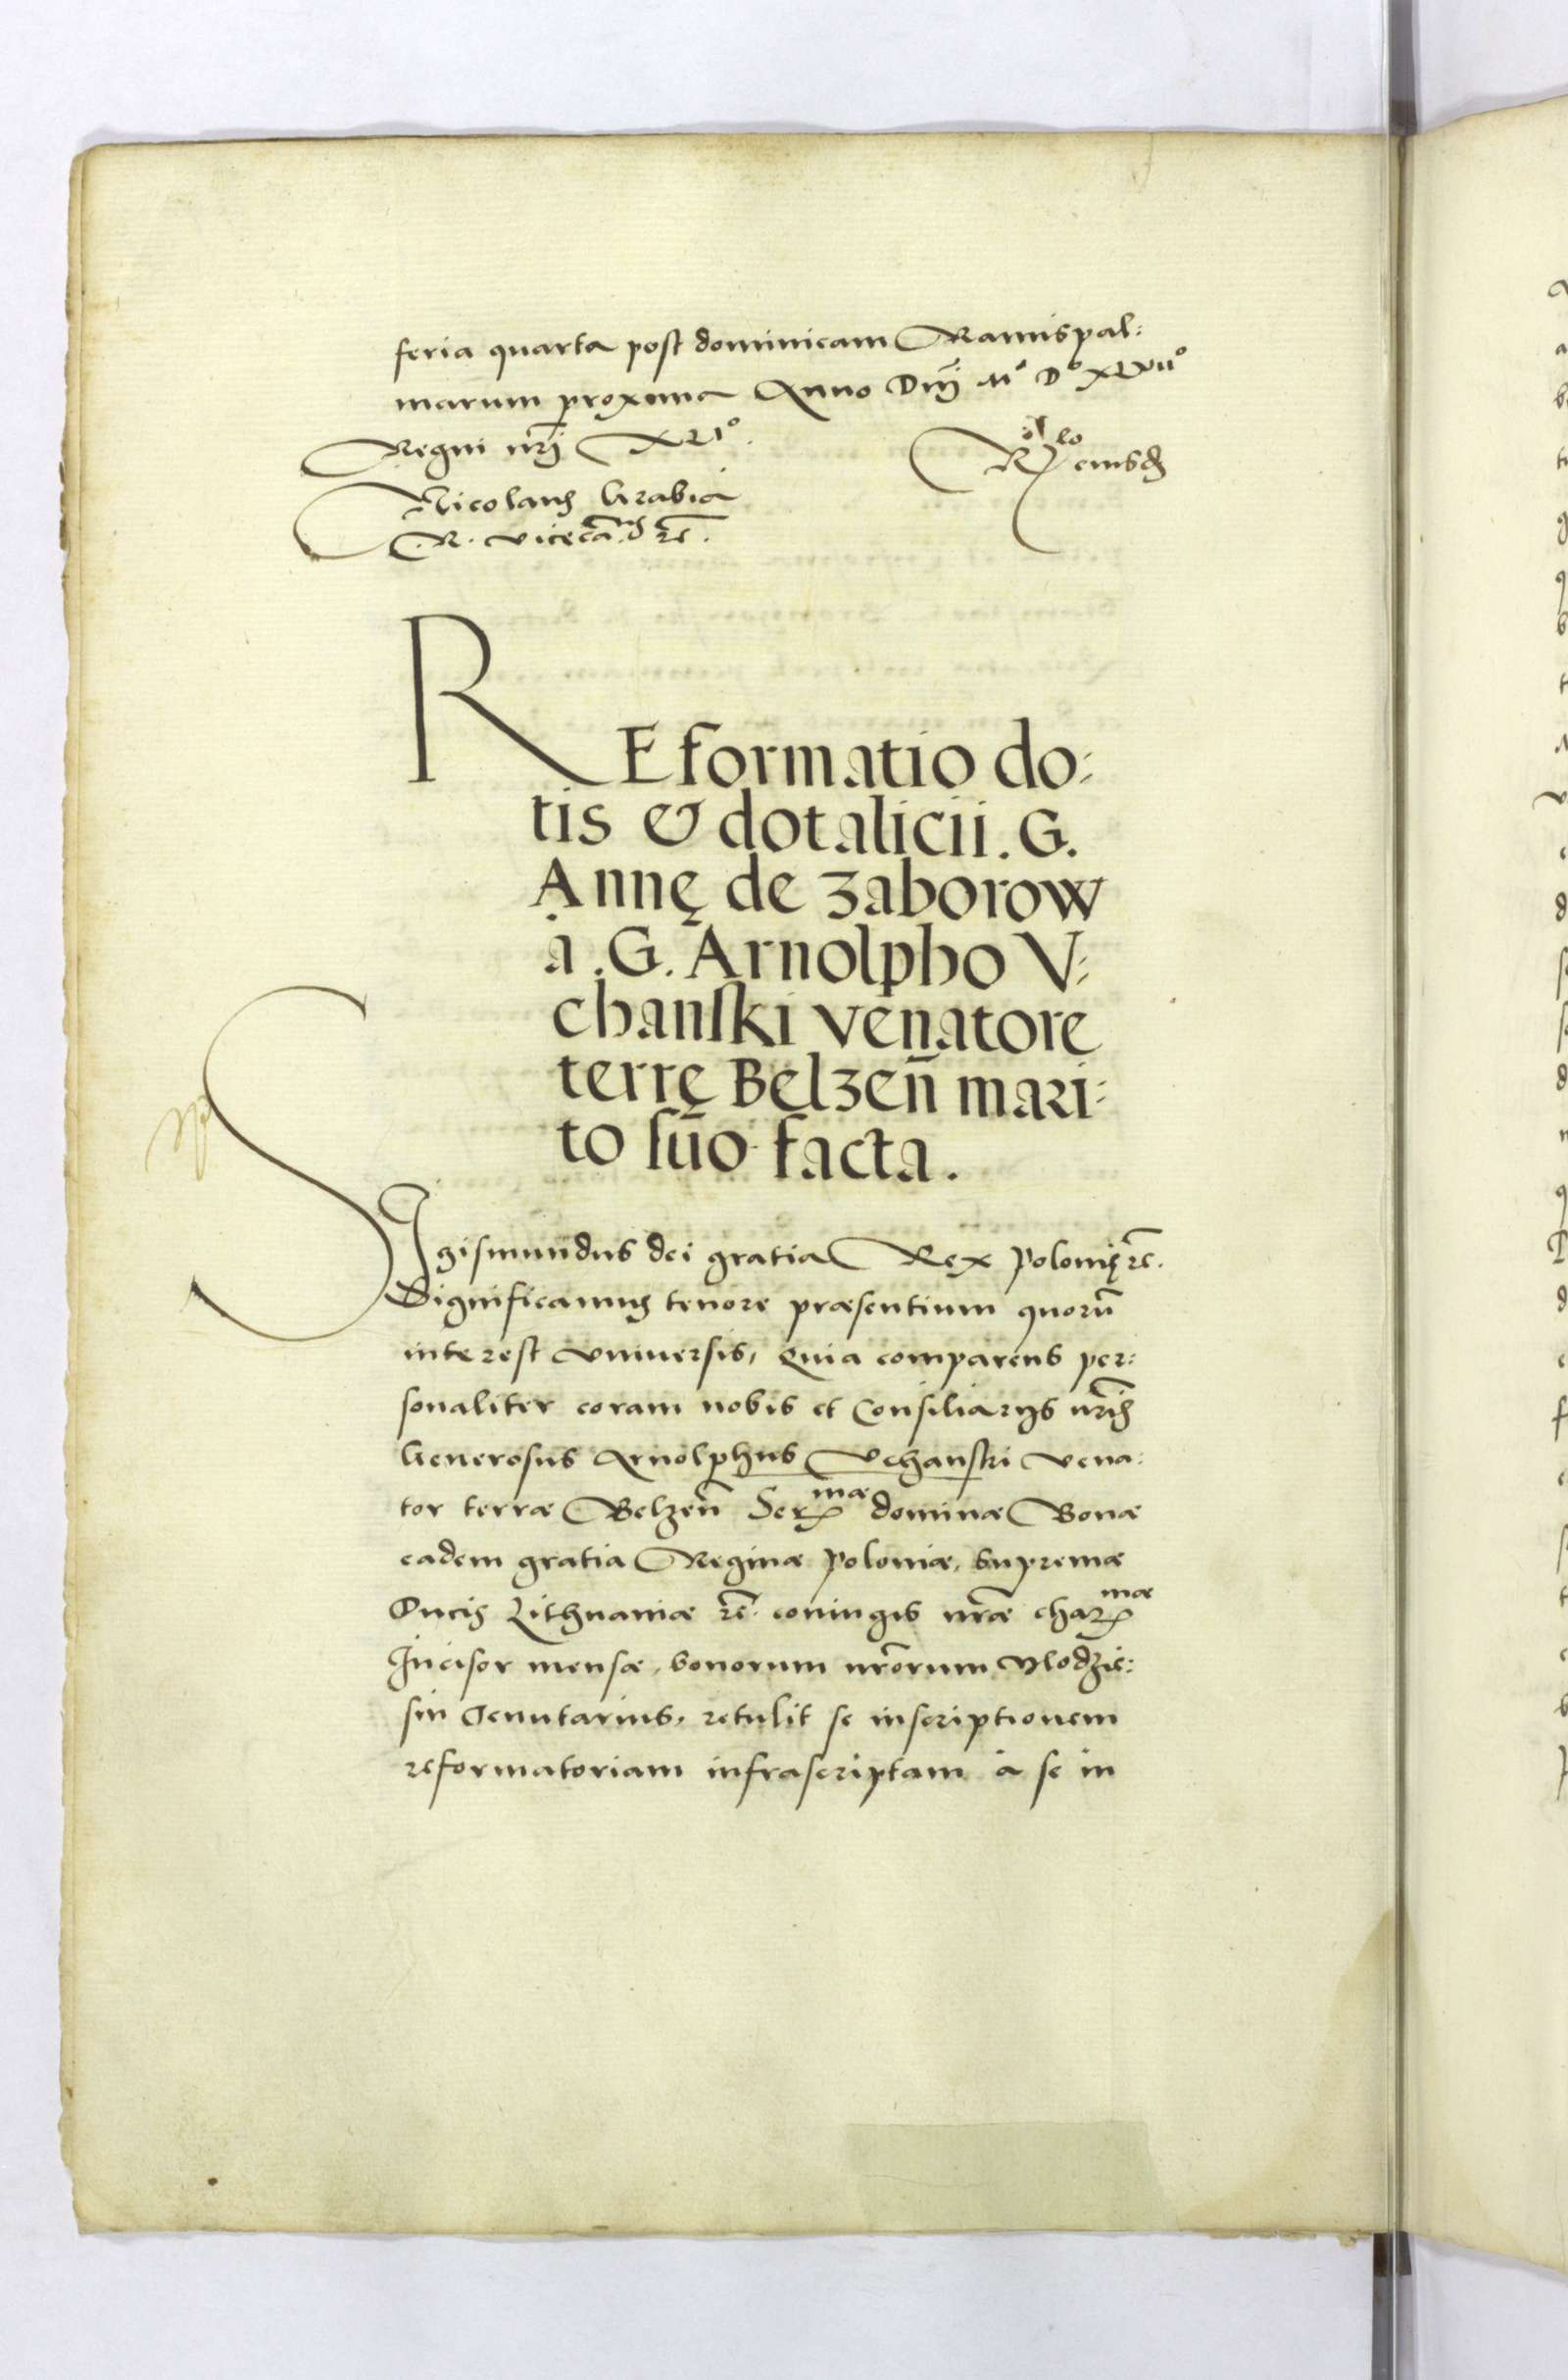 feria quarta post dominicam Ramispal:
marum proxima Anno Dnĩ Mº Dº XLVIIº
Regni nrĩ XLIº.
Rºlo eiusdẽ
Nicolaus Grabia
.R. vicecã.ʳⁱᵘˢ rc̃.
REformatio do:
tis & dotalicii. G.
Annę de Zaborow
à .G. Arnolpho V:
chanſki venatore
terrę Belzen̄ mari:
to ſuo facta.
SIgismundus dei gratia Rex Polonię rc̃.
Significamus tenore præsentium quorũ
interest vniuersis, Quia comparens per:
sonaliter coram nobis et Consiliarijs nrĩs
Generosus Arnolphus Vchanski vena:
tor terræ Belzen̄ Ser.ᵐᵃᵉ dominæ Bonæ
eadem gratia Reginæ Poloniæ, Supremæ
Ducis Lithuaniæ rc̃. coniugis nr̃æ char.ᵐᵃᵉ
Incisor mensæ, bonorum nr̃orum Vlodzie:
sin Tenutarius, retulit se inscriptionem
reformatoriam infrascriptam à se in